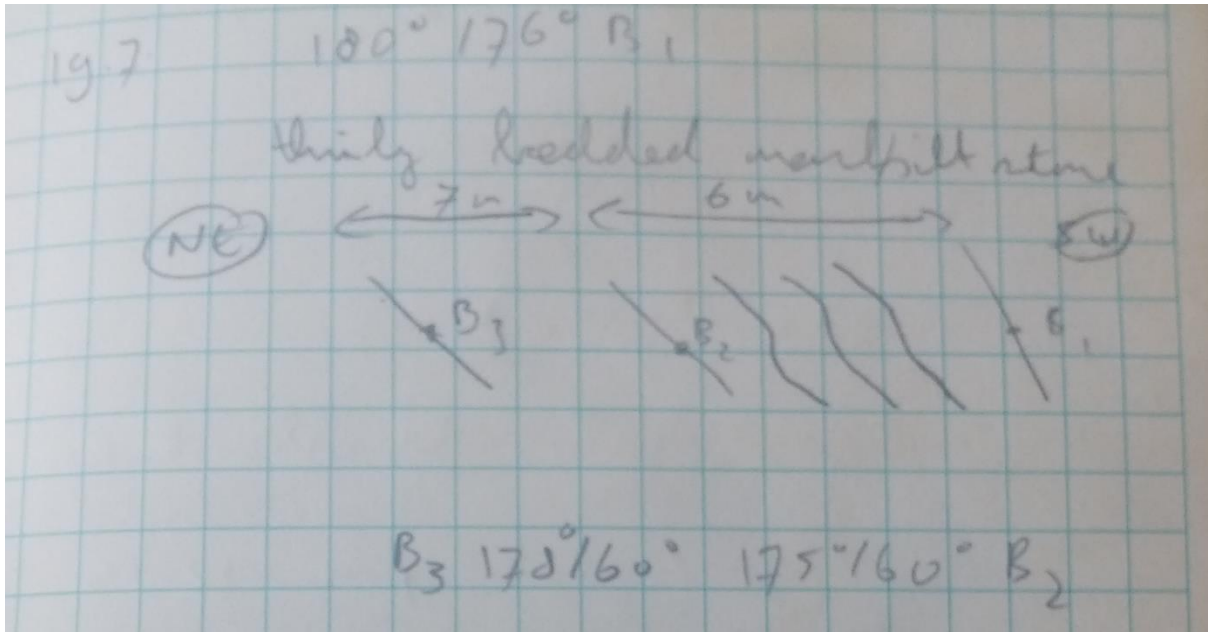 19.7 180° 176° B1
thinly bedded marl/siltstone
7m 6m
NE SW
B3 B2 B1
B3 178°/60° 175°/60° B2